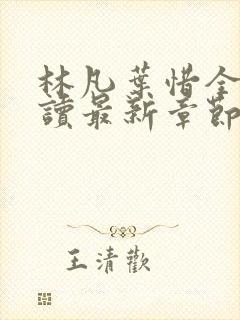 林凡葉惜全
讀最新章節
王清歡